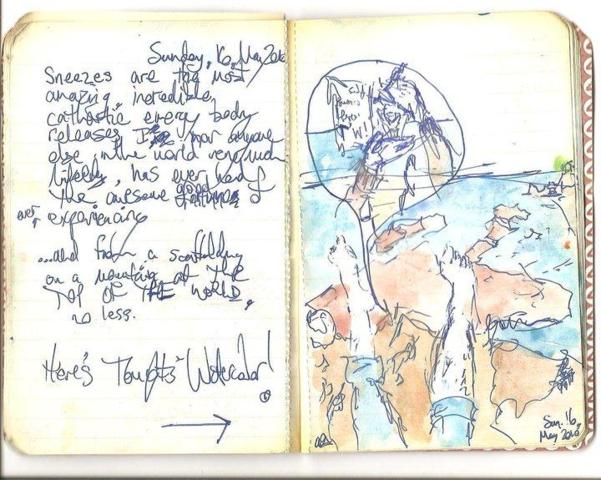 Sunday, 16, May 2010
Sneezes are the most
amazing, incredible,
cathartic energy body
releases, I nor anyone
else in the world very much
likely, has ever had
the awesome good fortune of
ever experiencing
...and from a scaffolding
on a mountain at THE
TOP OF THE WORLD,
no less.
Here's Tonight's Watercolor!
Sun. 16,
May 2010